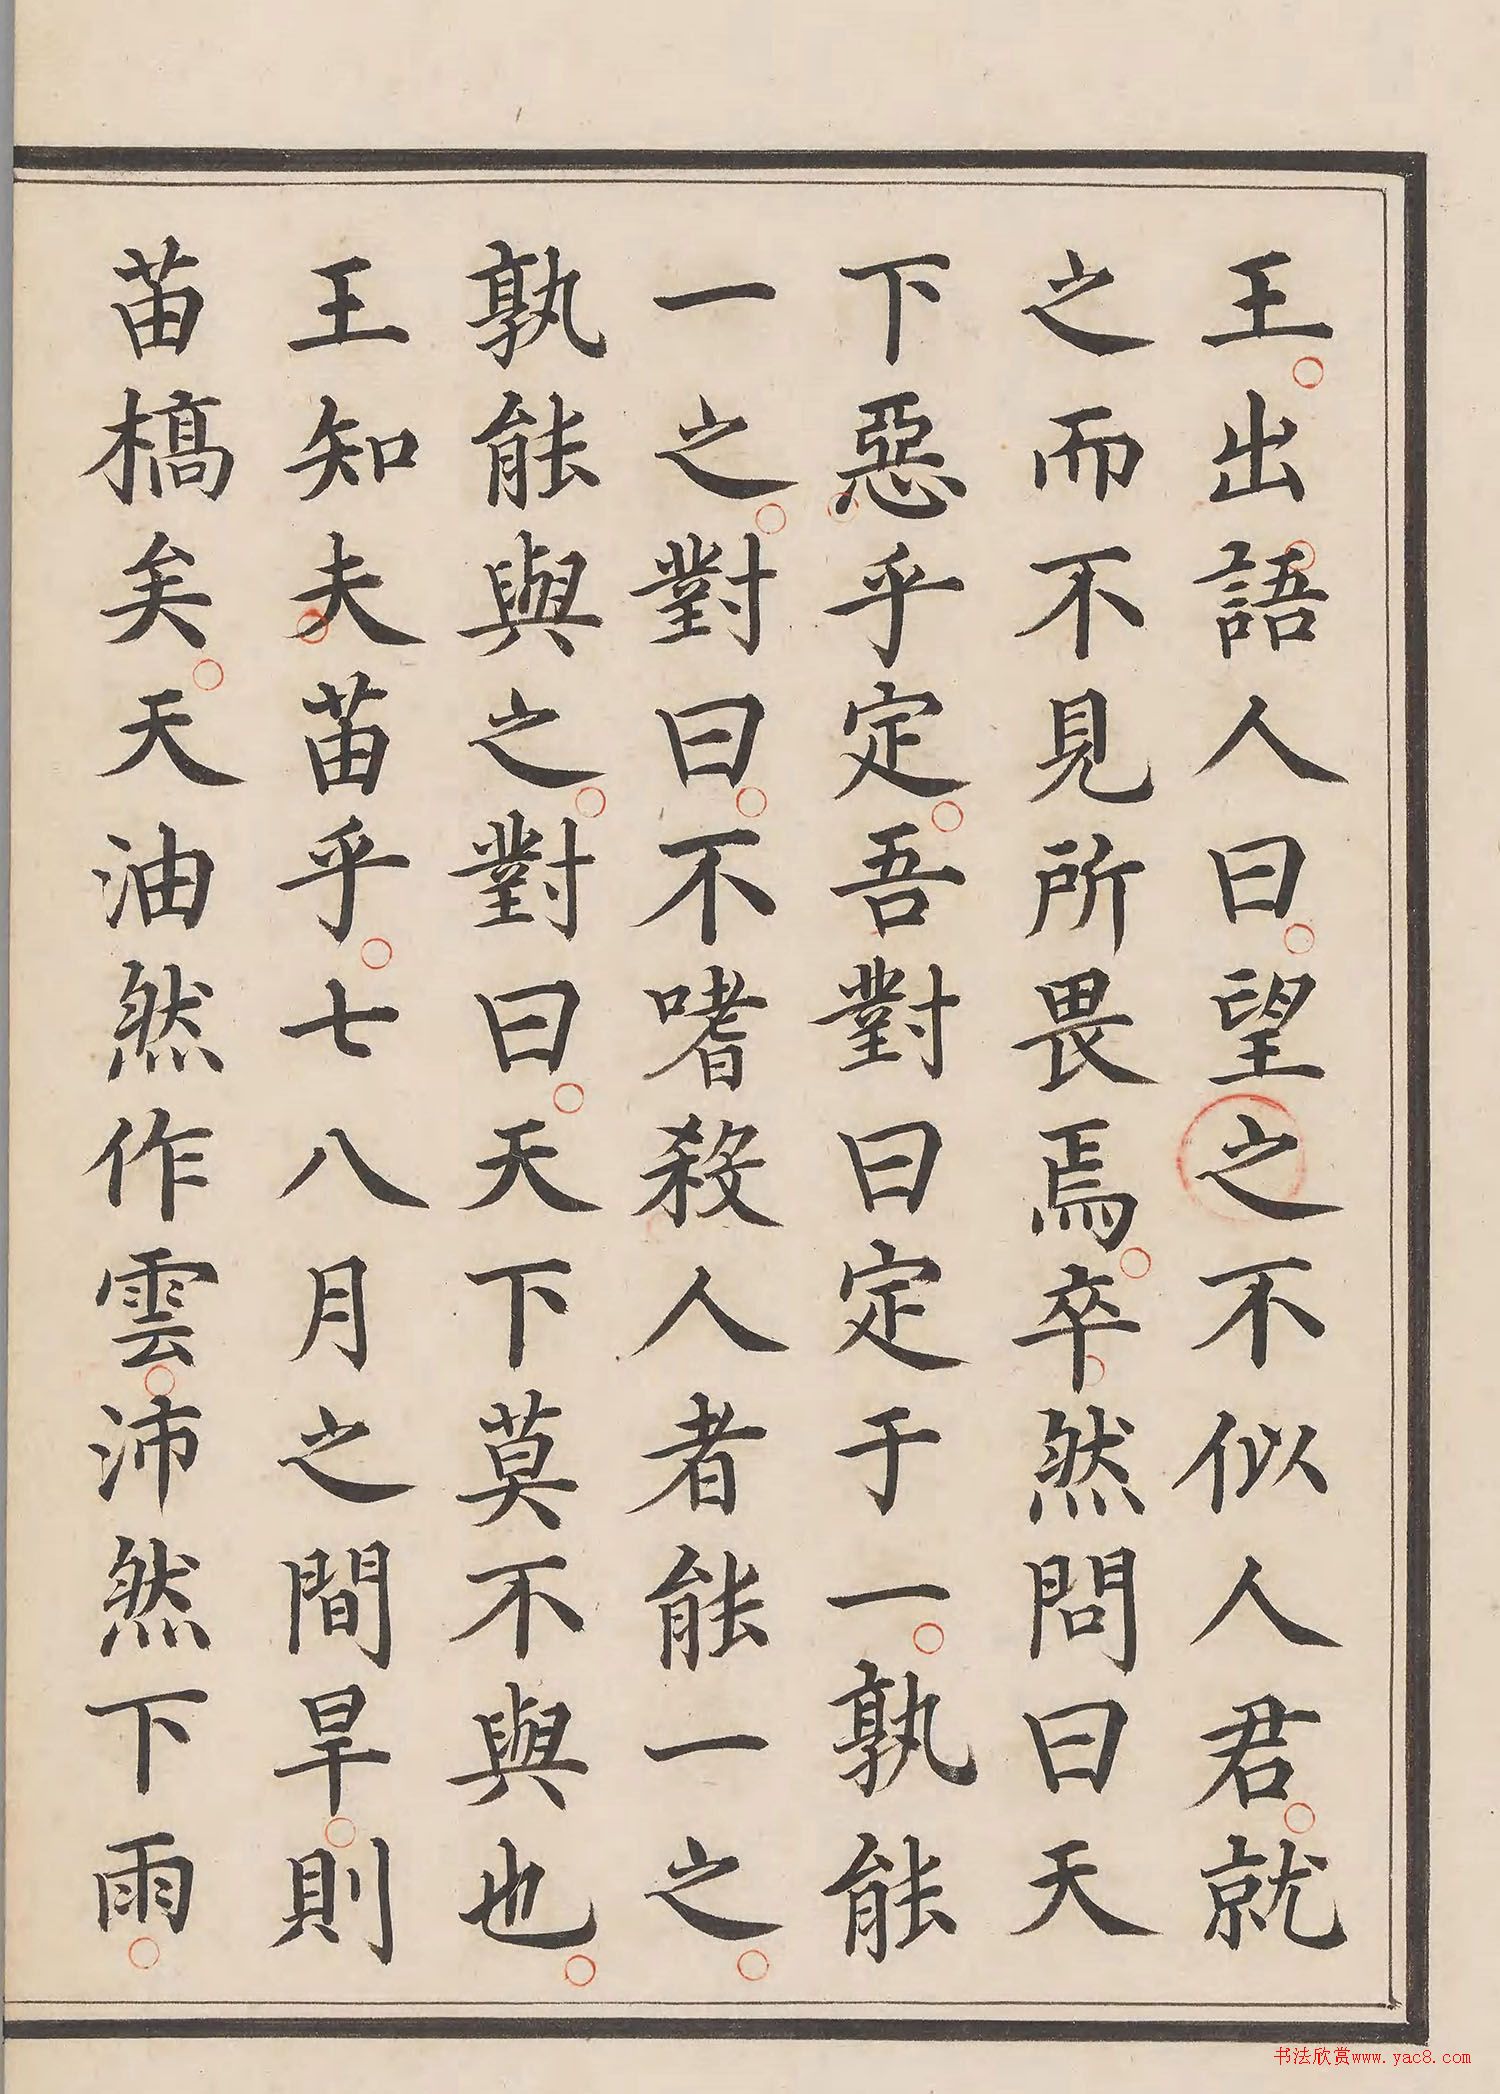 王出語人曰望之不似人君就
之而不見所畏焉卒然問曰天
下惡乎定吾對曰定于一孰能
一之對曰不嗜殺人者能一之
孰能與之對曰天下莫不與也
王知夫苗乎七八月之間旱則
苗槁矣天油然作雲沛然下雨
书法欣赏www.yac8.com